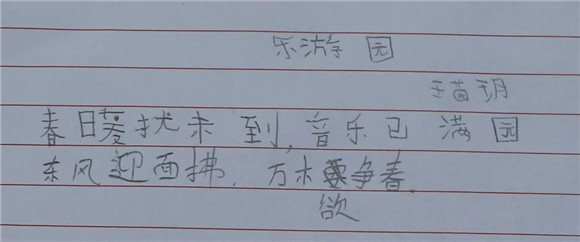 乐游园
王苗玥
春日暮扰未到,音乐已满园
东风迎面拂,万木争春。
欲